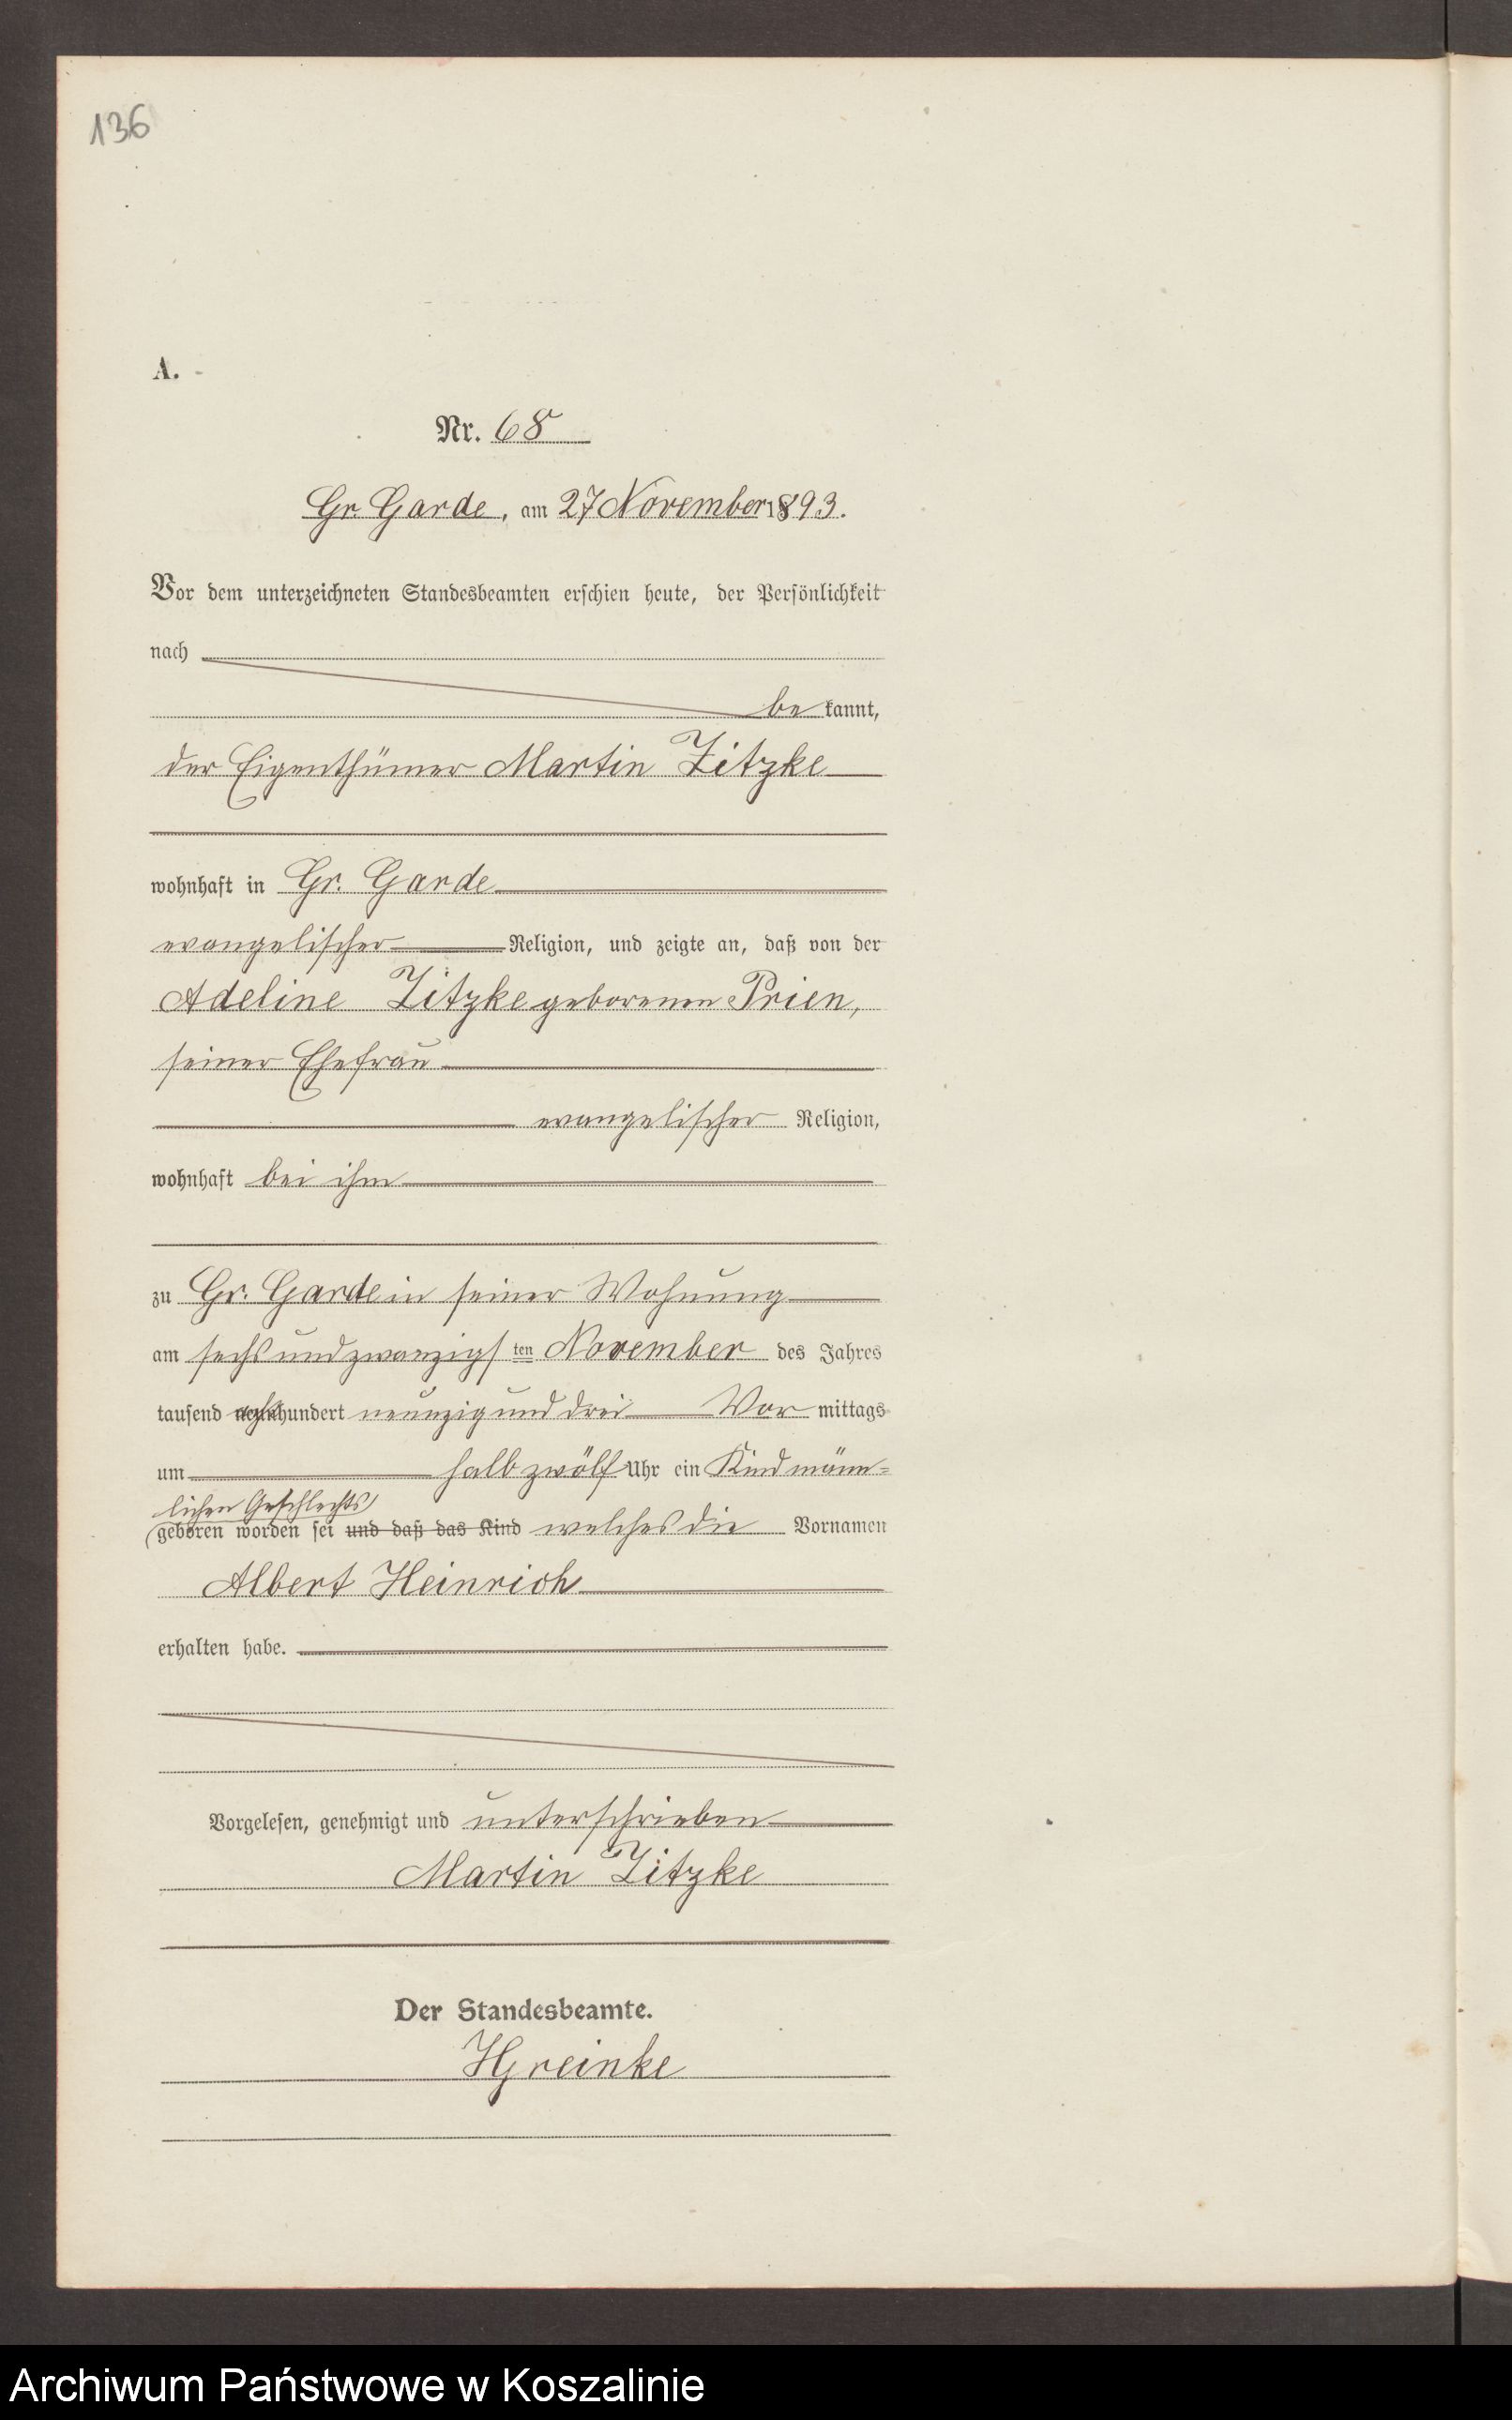 136
A.
Nr. 68
Gr. Garde, am 27 November 1893.
Vor dem unterzeichneten Standesbeamten erschien heute, der Persönlichkeit
nach
be kannt,
der Eigenthümer Martin Zitzke
wohnhaft in Gr. Garde
evangelischer Religion, und zeigte an, daß von der
Adeline Zitzke geborenen Prien,
seiner Ehefrau
evangelischer Religion,
wohnhaft bei ihm
zu Gr. Garde in seiner Wohnung
am sechsundzwanzigsten November des Jahres
tausend achthundert neunzig und drei Vor mittags
um halb zwölf Uhr ein Kind männ-
lichen Geschlechts
geboren worden sei und daß das Kind welches die Vornamen
Albert Heinrich
erhalten habe.
Vorgelesen, genehmigt und unterschrieben
Martin Zitzke
Der Standesbeamte.
HGreinke
Archiwum Państwowe w Koszalinie